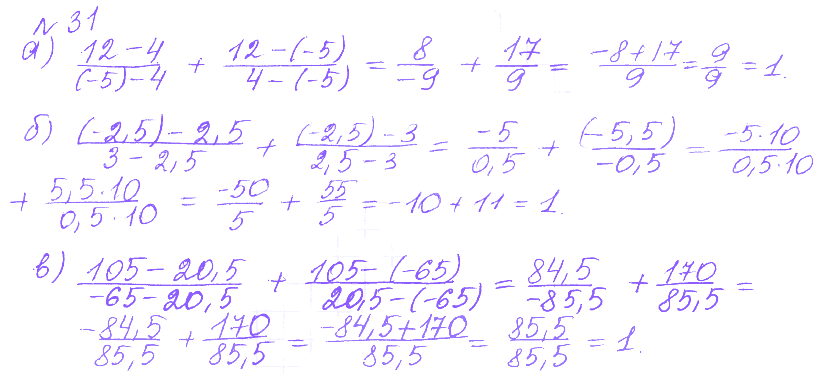 № 31
а) (12-4)/((-5)-4) + (12-(-5))/(4-(-5)) = 8/-9 + 17/9 = (-8+17)/9 = 9/9 = 1.
б) ((-2,5)-2,5)/(3-2,5) + ((-2,5)-3)/(2,5-3) = -5/0,5 + (-5,5)/-0,5 = -5·10/0,5·10
+ 5,5·10/0,5·10 = -50/5 + 55/5 = -10+11 = 1.
в) (105-20,5)/(-65-20,5) + (105-(-65))/(20,5-(-65)) = 84,5/-85,5 + 170/85,5 =
-84,5/85,5 + 170/85,5 = (-84,5+170)/85,5 = 85,5/85,5 = 1.